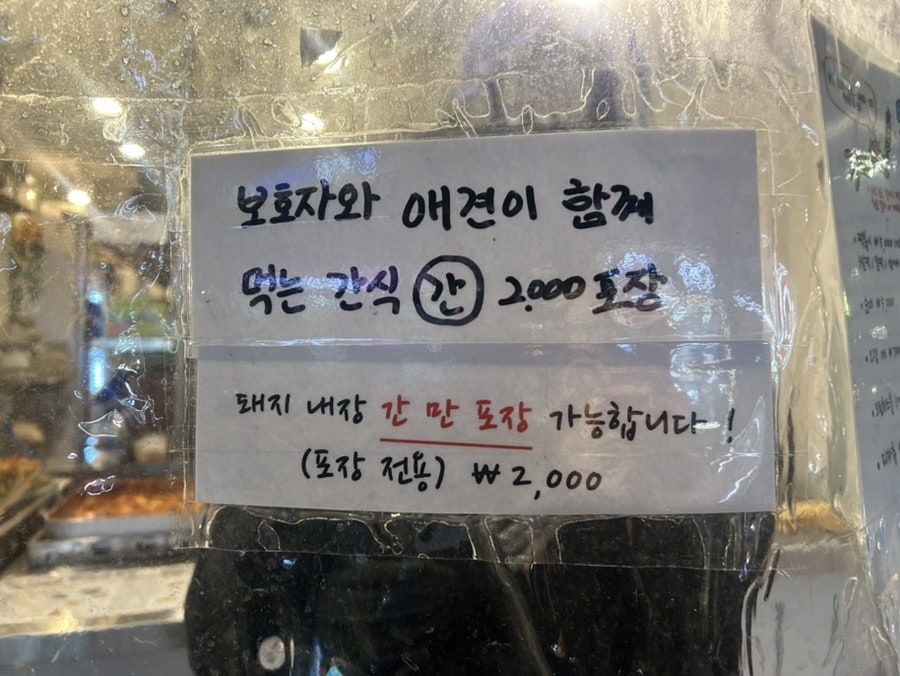 보호자와 애견이 함께
먹는 간식 간 2,000 포장
돼지 내장 간 만 포장 가능합니다!
(포장 전용) ₩2,000